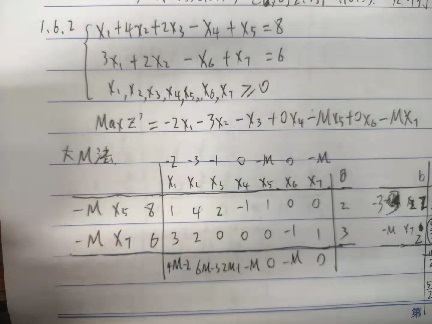 1.6.2 x₁+4x₂+2x₃-x₄+x₅=8
3x₁+2x₂ -x₆+x₇=6
x₁,x₂,x₃,x₄,x₅,x₆,x₇≥0
Max z'=-2x₁-3x₂-x₃+0x₄-Mx₅+0x₆-Mx₇
大M法: -2 -3 -1 0 -M 0 -M
x₁ x₂ x₃ x₄ x₅ x₆ x₇ θ b
-M x₅ 8 1 4 2 -1 1 0 0 2 -3
-M x₇ 6 3 2 0 0 0 -1 1 3 -M x₇ 2
4M-2 6M-3 2M-1 -M 0 -M 0
第